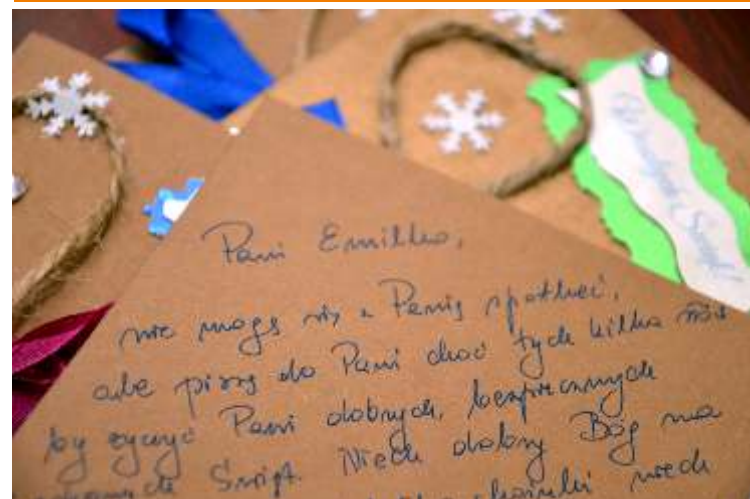 Wesołych Świąt!
Pani Emilko,
nie mogę się z Panią spotkać,
ale piszę do Pani choć tych kilka słów
by życzyć Pani dobrych, bezpiecznych
Świąt. Niech dobry Bóg na
choinki niech